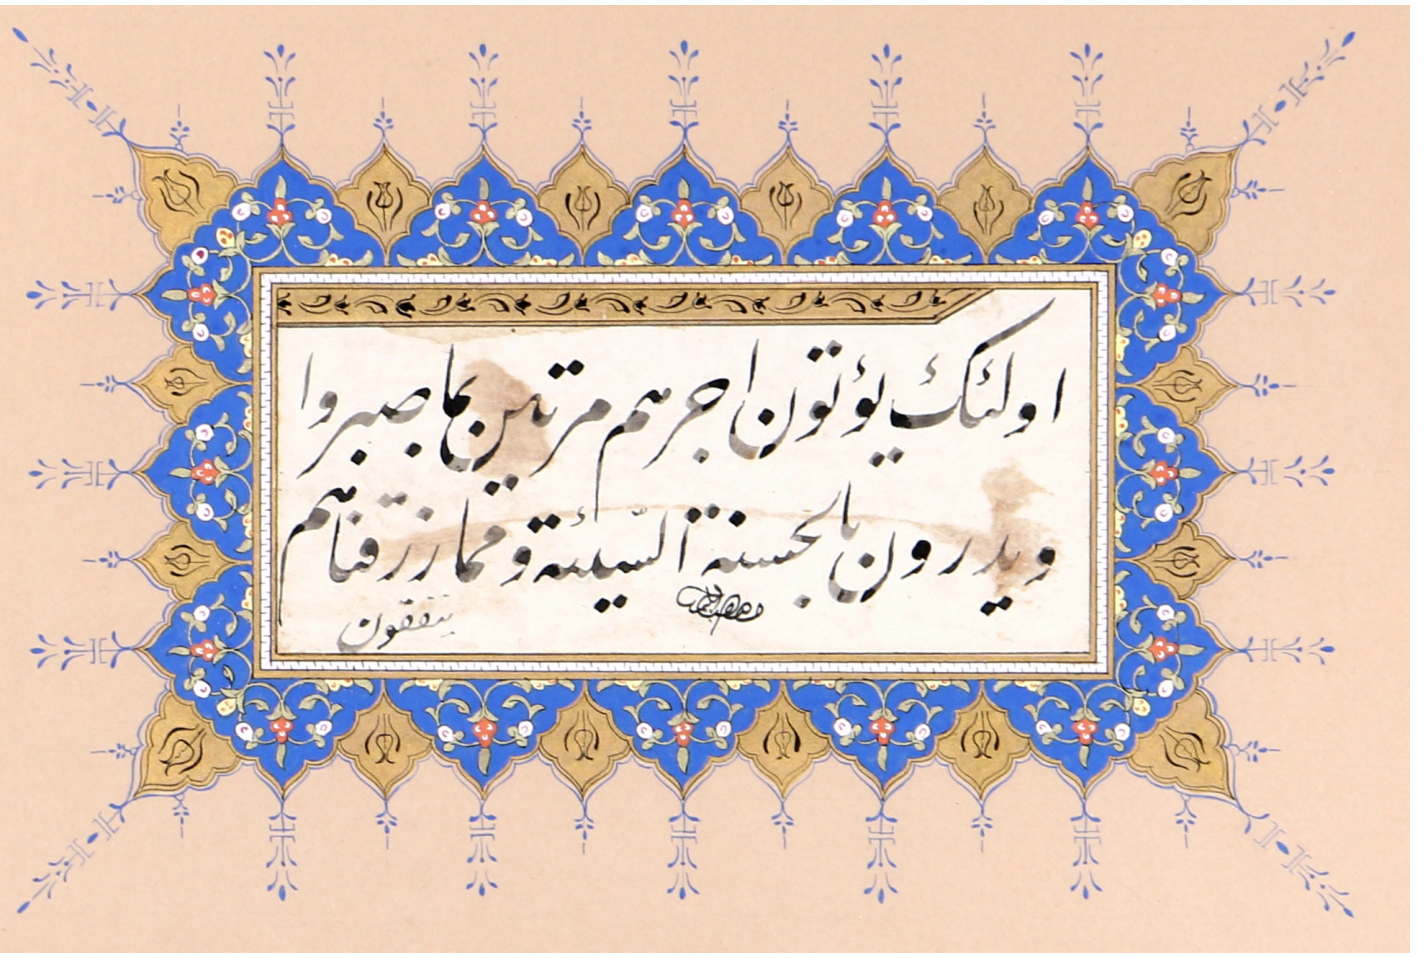 اولئك يؤتون اجرهم مرتين بما صبروا
ويدرون بالحسنة السيئة ومما رزقناهم
ينفقون